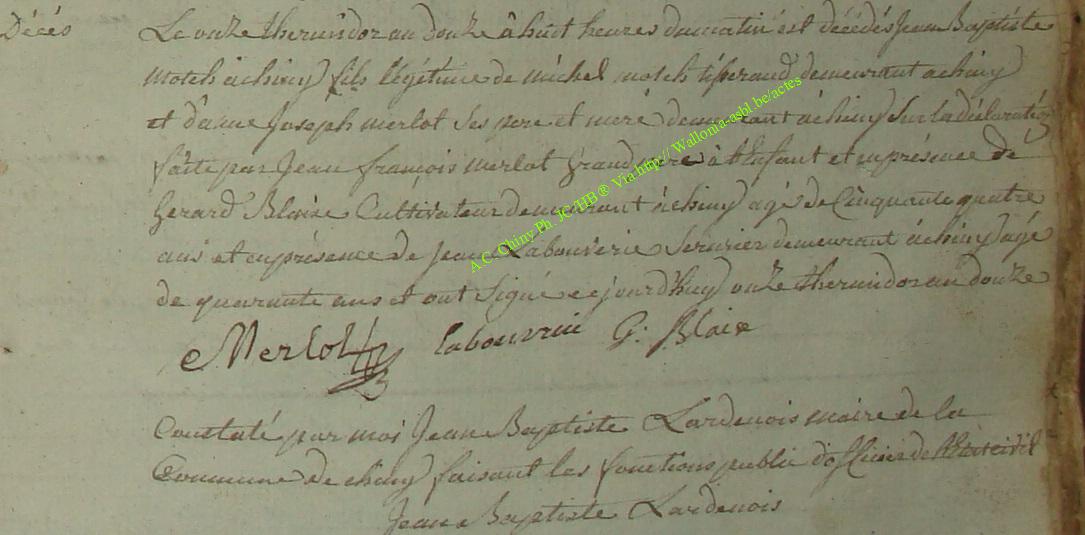 Décés
Le onze thermidor an douze à huit heures du matin est décédés Jean Baptiste
motch à chiny fils légétime de michel motch tisserand demeurant à chiny
et d'anne Joseph merlot ses pere et meré demeurant à chiny Sur la déclaration
faite par Jean françois merlot Grand pere à l'enfant et en présence de
Gerard Blaise Cultivateur demeurant à chiny agé de Cinquante quatre
ans et en présence de Jean Labouverie Serurier demeurant à chiny agé
de quarante ans et ont Signé ce jourd'huy onze thermidor an douze
Merlot labouvrie G. Blaise
Constaté par moi Jean Baptiste Lardenois maire de la
Commune de chiny faisant les fonctions public d'officier de l'état civil
Jean Baptiste Lardenois
A.C. Chiny Ph. JC/HB® Via http// Wallonia-asbl.be/actes